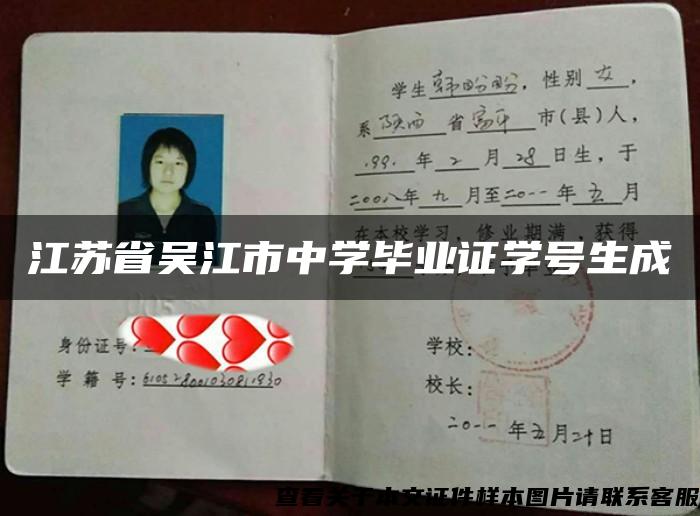 学生韩盼盼，性别女，
系陕西省富平市(县)人，
1991年2月28日生，于
二00八年九月至二0一一年五月
在本校学习，修业期满，获得
江苏省吴江市中学毕业证学号生成
身份证号:
学籍号:
学校:
校长:
二0一一年五月二十日
查看关于本文证件样本图片请联系客服